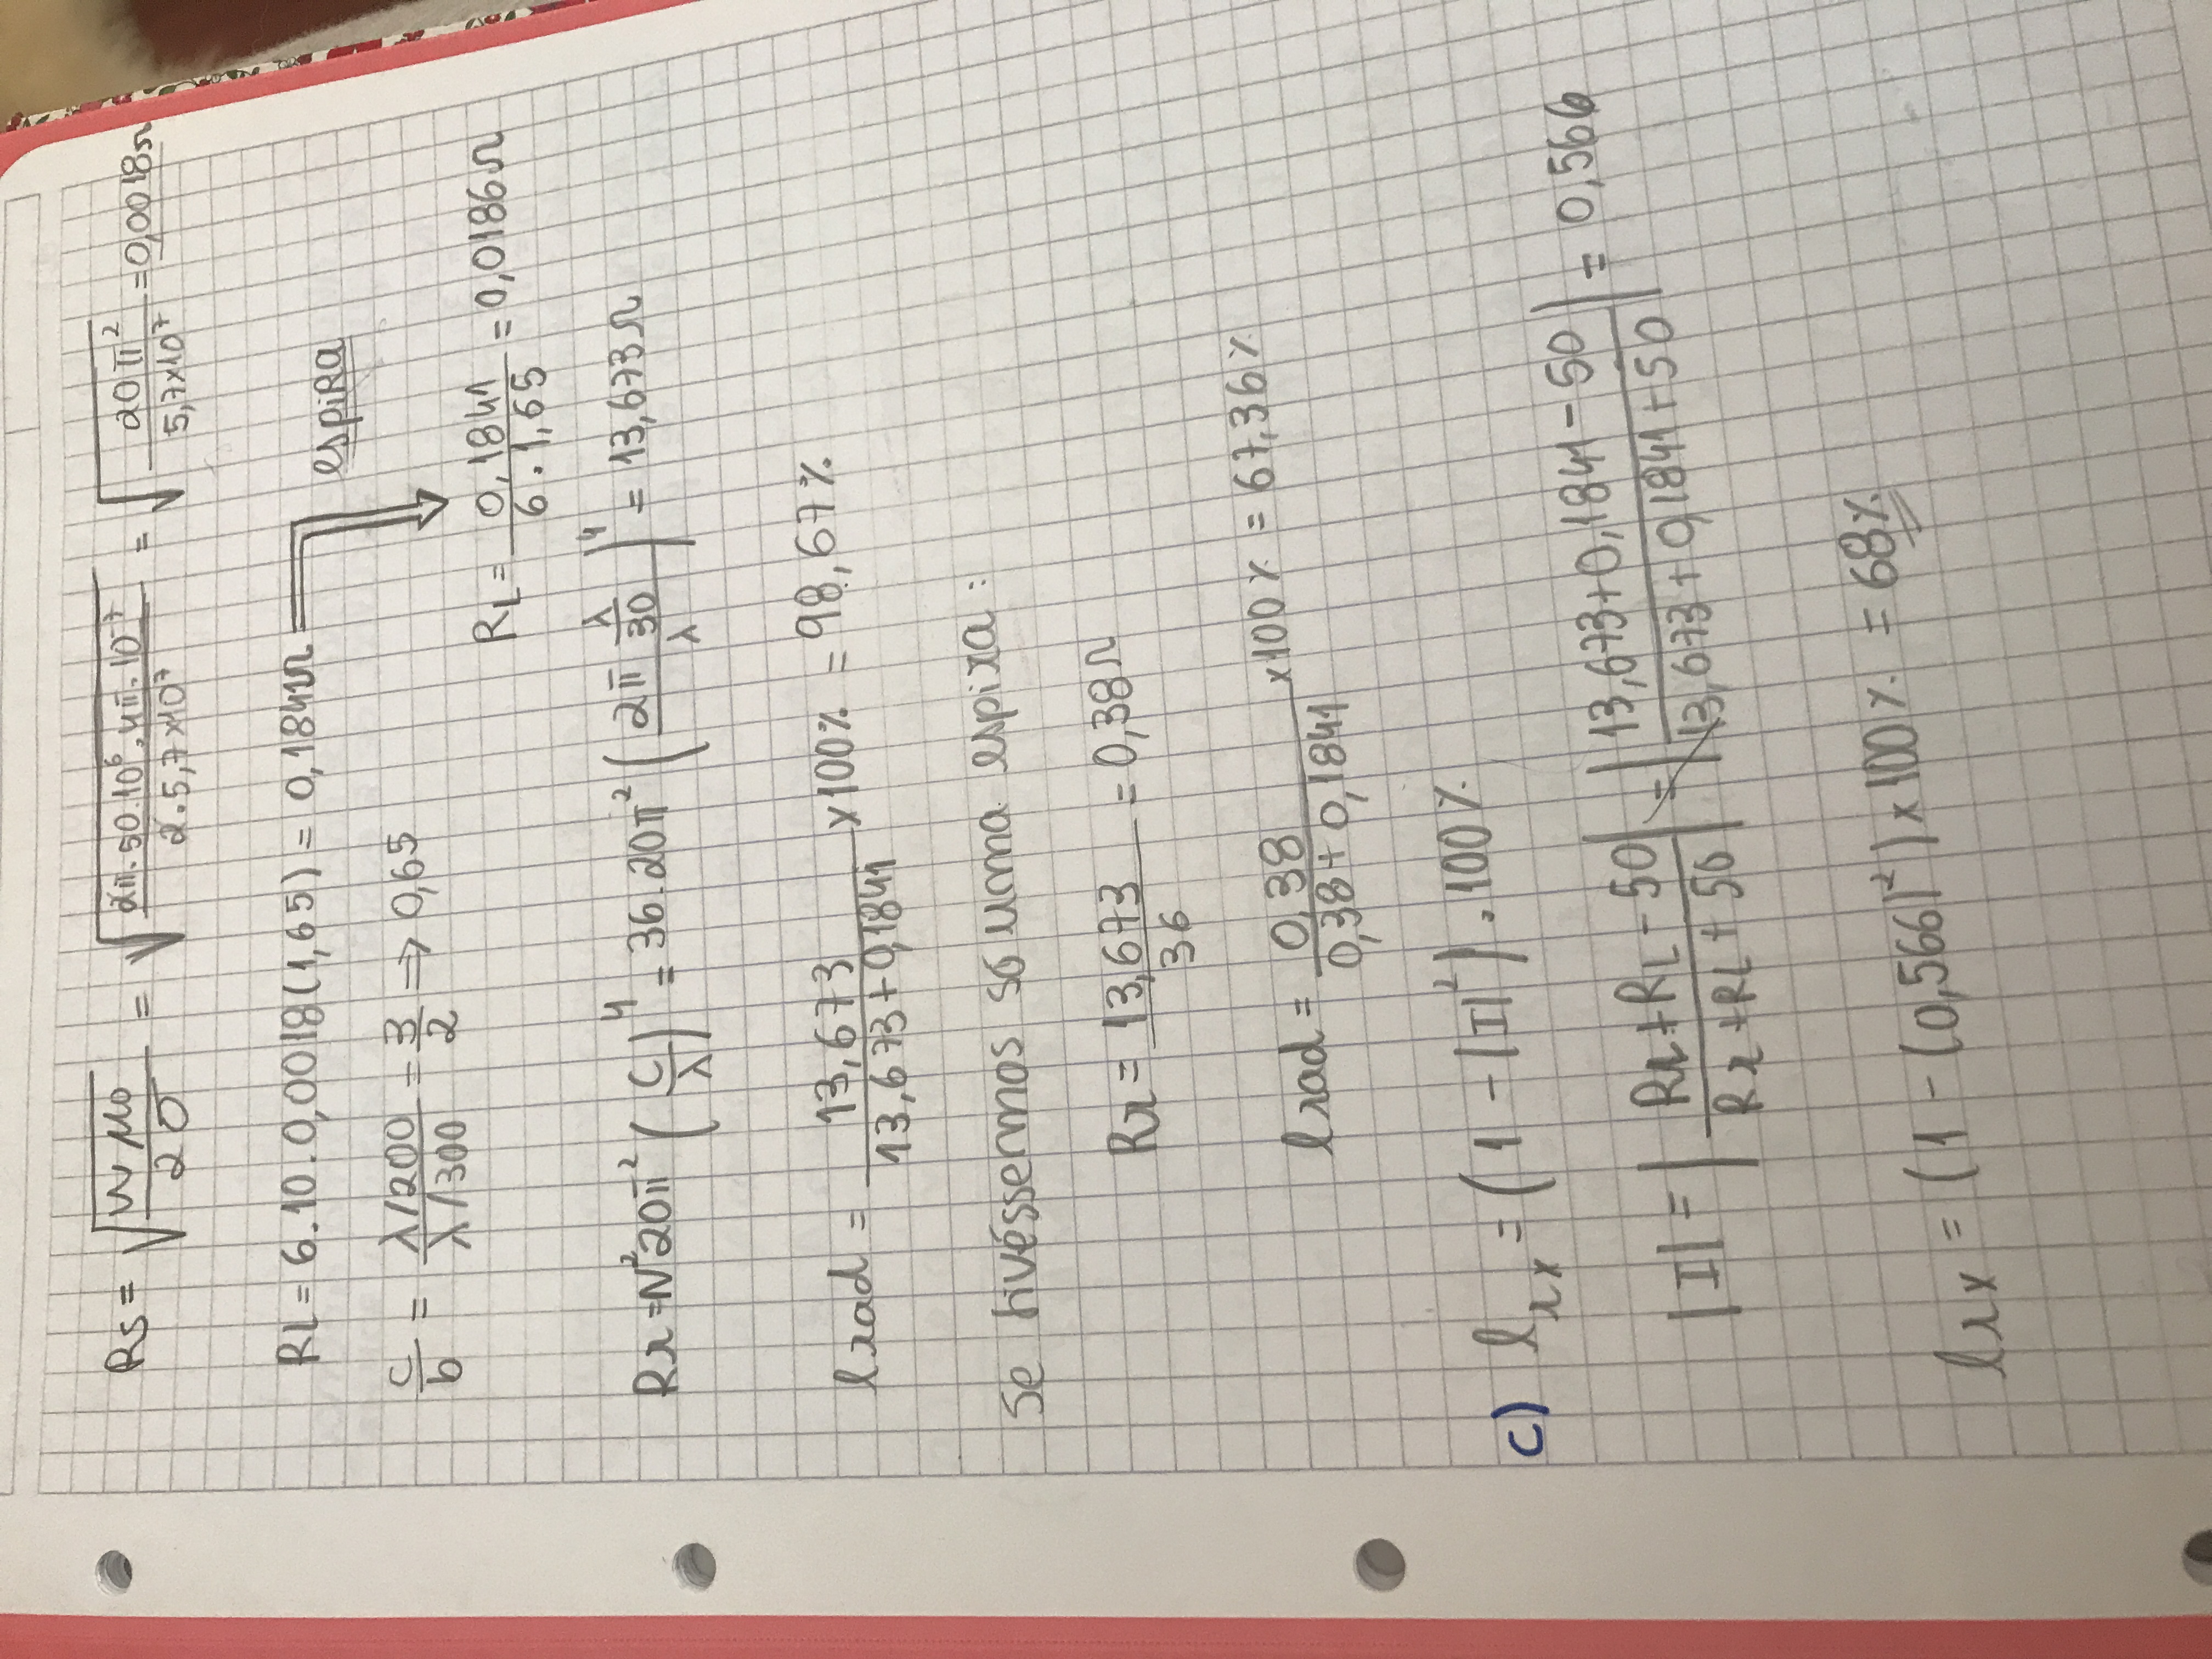 Rs = √(wμ0 / 2σ) = √(2π·50·10⁶·4π·10⁻⁷ / 2·5,7×10⁷) = √(20π² / 5,7×10⁷) = 0,0018Ω
RL = 6·10·0,0018(1,65) = 0,1841Ω ⇒ espira
c/b = (λ/200)/(λ/300) = 3/2 ⇒ 0,65
RL = 0,1841 / 6·1,65 = 0,0186Ω
Rr = N²20π² (C/λ)⁴ = 36·20π² (2π λ/30 / λ)⁴ = 13,673Ω
erad = 13,673 / 13,673+0,1841 ×100% = 98,67%
Se tivéssemos só uma espira:
Rr = 13,673 / 36 = 0,38Ω
erad = 0,38 / 0,38+0,1841 ×100% = 67,36%
c) erx = (1 - |Γ|²)·100%
|Γ| = |Rr+RL-50 / Rr+RL+50| = |13,673+0,1841-50 / 13,673+0,1841+50| = 0,566
erx = (1-(0,566)²)×100% = 68%